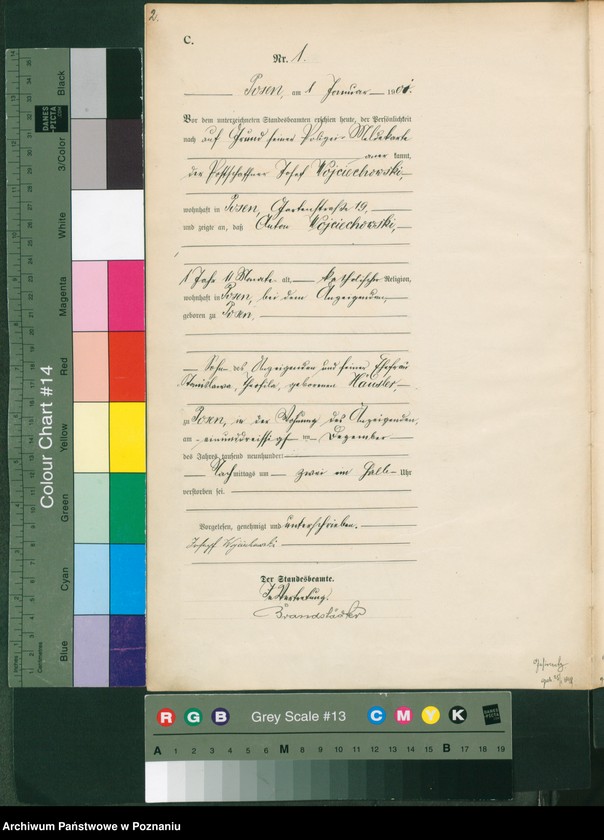 2.
C.
Nr. 1.
Posen, am 1 Januar 190
Vor dem unterzeichneten Standesbeamten erschien heute, der Persönlichkeit
nach auf Grund seiner Polizei-Meldekarte
kannt,
der Postschaffner Josef Wojciechowski,
wohnhaft in Posen, Gartenstraße 19,
und zeigte an, daß Anton Wojciechowski,
1 Jahr 11 Monate alt, katholischer Religion,
wohnhaft in Posen, bei dem Anzeigenden,
geboren zu Posen,
Sohn des Anzeigenden und seiner Ehefrau
Stanislawa, Theofila, geborenen Häusler,
zu Posen, in der Wohnung des Anzeigenden,
am einunddreissigsten Dezember
des Jahres tausend neunhundert
Nachmittags um zwei ein halb Uhr
verstorben sei.
Vorgelesen, genehmigt und unterschrieben.
Der Standesbeamte.
In Vertretung.
Brandstädter
Colour Chart #14
Black
3/Color
White
Magenta
Red
Yellow
Green
Cyan
Blue
Inches
Centimetres
DANES
PICTA
.COM
R G B Grey Scale #13 C M Y K
A 1 2 3 4 5 6 M 8 9 10 11 12 13 14 15 B 17 18 19
Archiwum Państwowe w Poznaniu